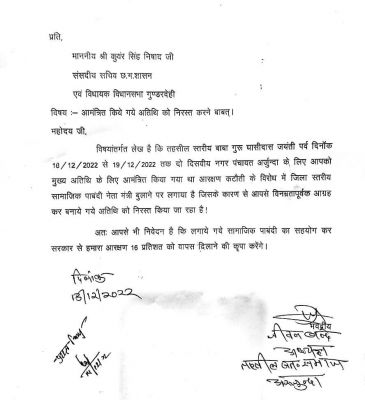 प्रति,
माननीय श्री कुवंर सिंह निषाद जी
संसदीय सचिव छ.ग.शासन
एवं विधायक विधानसभा गुण्डरदेही
विषय :– आमंत्रित किये गये अतिथि को निरस्त करने बाबत्।
महोदय जी,
विषयांतर्गत लेख है कि तहसील स्तरीय बाबा गुरू घासीदास जयंती पर्व दिनॉक
18/12/2022 से 19/12/2022 तक दो दिसयीय नगर पंचायत अर्जुन्दा के लिए आपको
मुख्य अतिथि के लिए आमंत्रित किया गया था आरक्षण कटौती के विरोध में जिला स्तरी
सामाजिक पाबंदी नेता मंत्री बुलाने पर लगाया है जिसके कारण से आपसे विनम्रतापूर्वक आग्रह
कर बनाये गये अतिथि को निरस्त किया जा रहा है !
अतः आपसे भी निवेदन है कि लगाये गये सामाजिक पाबंदी का सहयोग कर
सरकार से हमारा आरक्षण 16 प्रतिशत को वापस दिलाने की कृपा करेंगे।
दिनांक
13/12/2022
भवदीय
जीवन
अध्यक्ष
तहसील सतनाम समाज
अर्जुन्दा